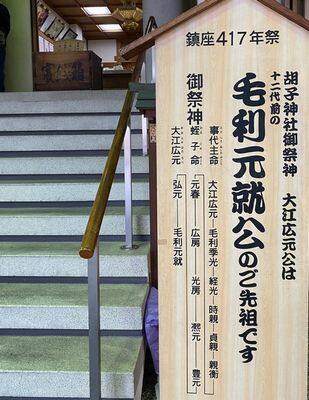 鎮座417年祭
胡子神社御祭神 大江広元公は
十二代前の
毛利元就公のご先祖です
御祭神
事代主命
蛭子命
大江広元
大江広元―毛利季光―経光―時親―貞親―親衡
元春―広房―光房―凞元―豊元
弘元―毛利元就